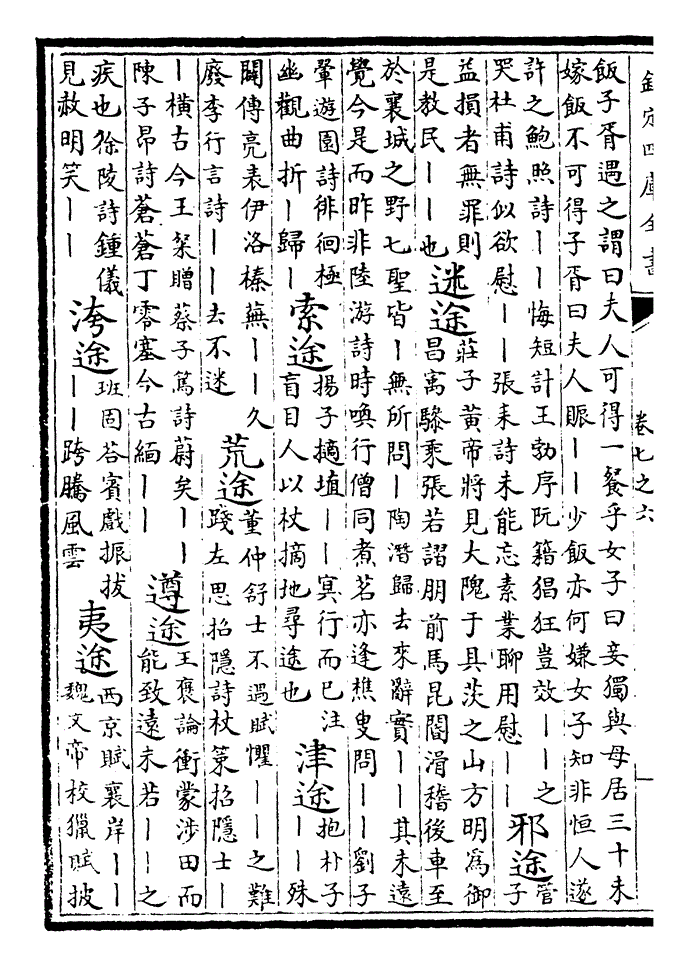 欽定四庫全書
卷七之六
飯子胥遇之謂曰夫人可得一餐乎女子曰妾獨與母居三十未
嫁飯不可得子胥曰夫人賑丨丨少飯亦何嫌女子知非恒人遂
許之鮑照詩丨丨悔短計王勃序阮籍猖狂豈效丨丨之
哭杜甫詩似欲慰丨丨張耒詩未能忘素業聊用慰丨丨
邪途
管
子
益損者無罪則
是教民丨丨也
迷途
莊子黃帝將見大隗于具茨之山方明為御
昌寓驂乘張若謵朋前馬昆閽滑稽後車至
於襄城之野七聖皆丨無所問丨陶潛歸去來辭實丨丨其未遠
覺今是而昨非陸游詩時喚行僧同煮茗亦逢樵叟問丨丨劉子
翬遊園詩徘徊極
幽觀曲折丨歸丨
索途
揚子擿埴丨丨冥行而已注
盲目人以杖摘地尋途也
津途
抱朴子
丨丨殊
闊傳亮表伊洛榛蕪丨丨久
廢李行言詩丨丨去不迷
荒途
董仲舒士不遇賦懼丨丨之難
踐左思招隱詩杖策招隱士丨
丨橫古今王粲贈蔡子篤詩蔚矣丨丨
陳子昂詩蒼蒼丁零塞今古緬丨丨
遵途
王褒論衝蒙涉田而
能致遠未若丨丨之
疾也徐陵詩鍾儀
見赦明笑丨丨
洿途
班固荅賓戲振拔
丨丨跨騰風雲
夷途
西京賦襄岸丨丨
魏文帝校獵賦披